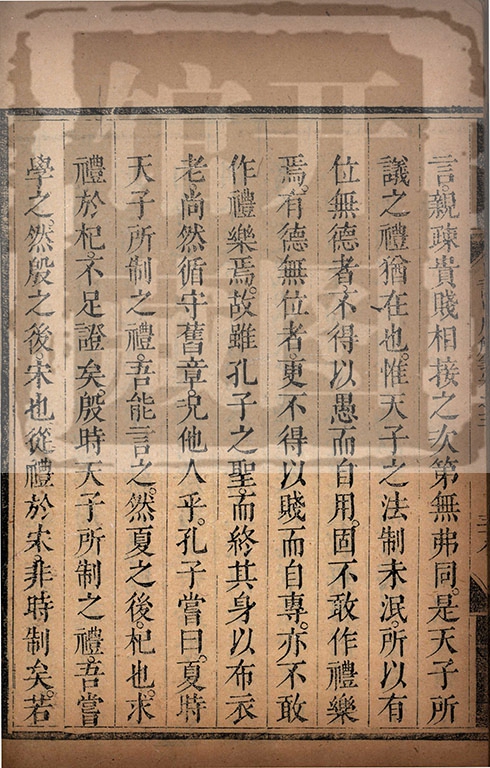 言。親疎貴賤相接之次第無弗同。是天子所
議之禮猶在也。惟天子之法制未泯。所以有
位無德者。不得以愚而自用。固不敢作禮樂
焉。有德無位者。更不得以賤而自專。亦不敢
作禮樂焉。故雖孔子之聖。而終其身以布衣
老。尚然循守舊章。况他人乎。孔子嘗曰。夏時
天子所制之禮。吾能言之。然夏之後。杞也。求
禮於杞。不足證矣。殷時天子所制之禮。吾嘗
學之。然殷之後。宋也。從禮於宋。非時制矣。若